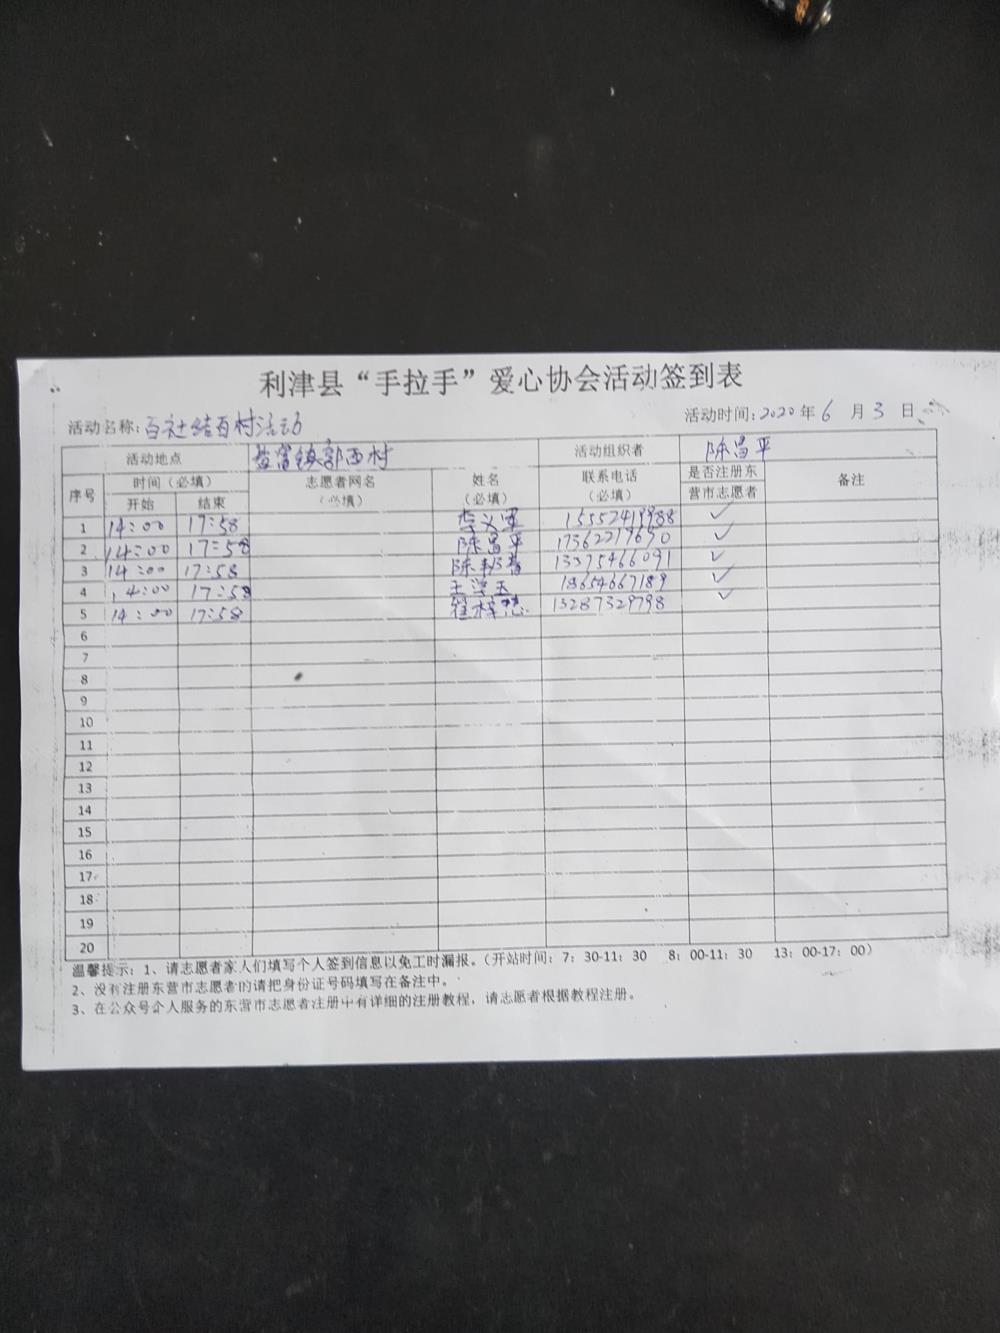 利津县“手拉手”爱心协会活动签到表
活动名称:百社结百村活动 活动时间:2020年6月3日
活动地点 盐窝镇部西村 活动组织者 陈昌平
序号 时间(必填) 志愿者网名(必填) 姓名(必填) 联系电话(必填) 是否注册东营市志愿者 备注
开始 结束
1 14:00 17:58 李义军 15552419988 ✓
2 14:00 17:58 陈昌平 17362219690 ✓
3 14:00 17:58 13375466091 ✓
4 14:00 17:58 18654667189 ✓
5 14:00 17:58 13287329798 ✓
6
7
8
9
10
11
12
13
14
15
16
17
18
19
20
温馨提示:1、请志愿者家人们填写个人签到信息以免工时漏报。(开站时间:7:30-11:30 8:00-11:30 13:00-17:00)
2、没有注册东营市志愿者的请把身份证号码填写在备注中。
3、在公众号个人服务的东营市志愿者注册中有详细的注册教程,请志愿者根据教程注册。